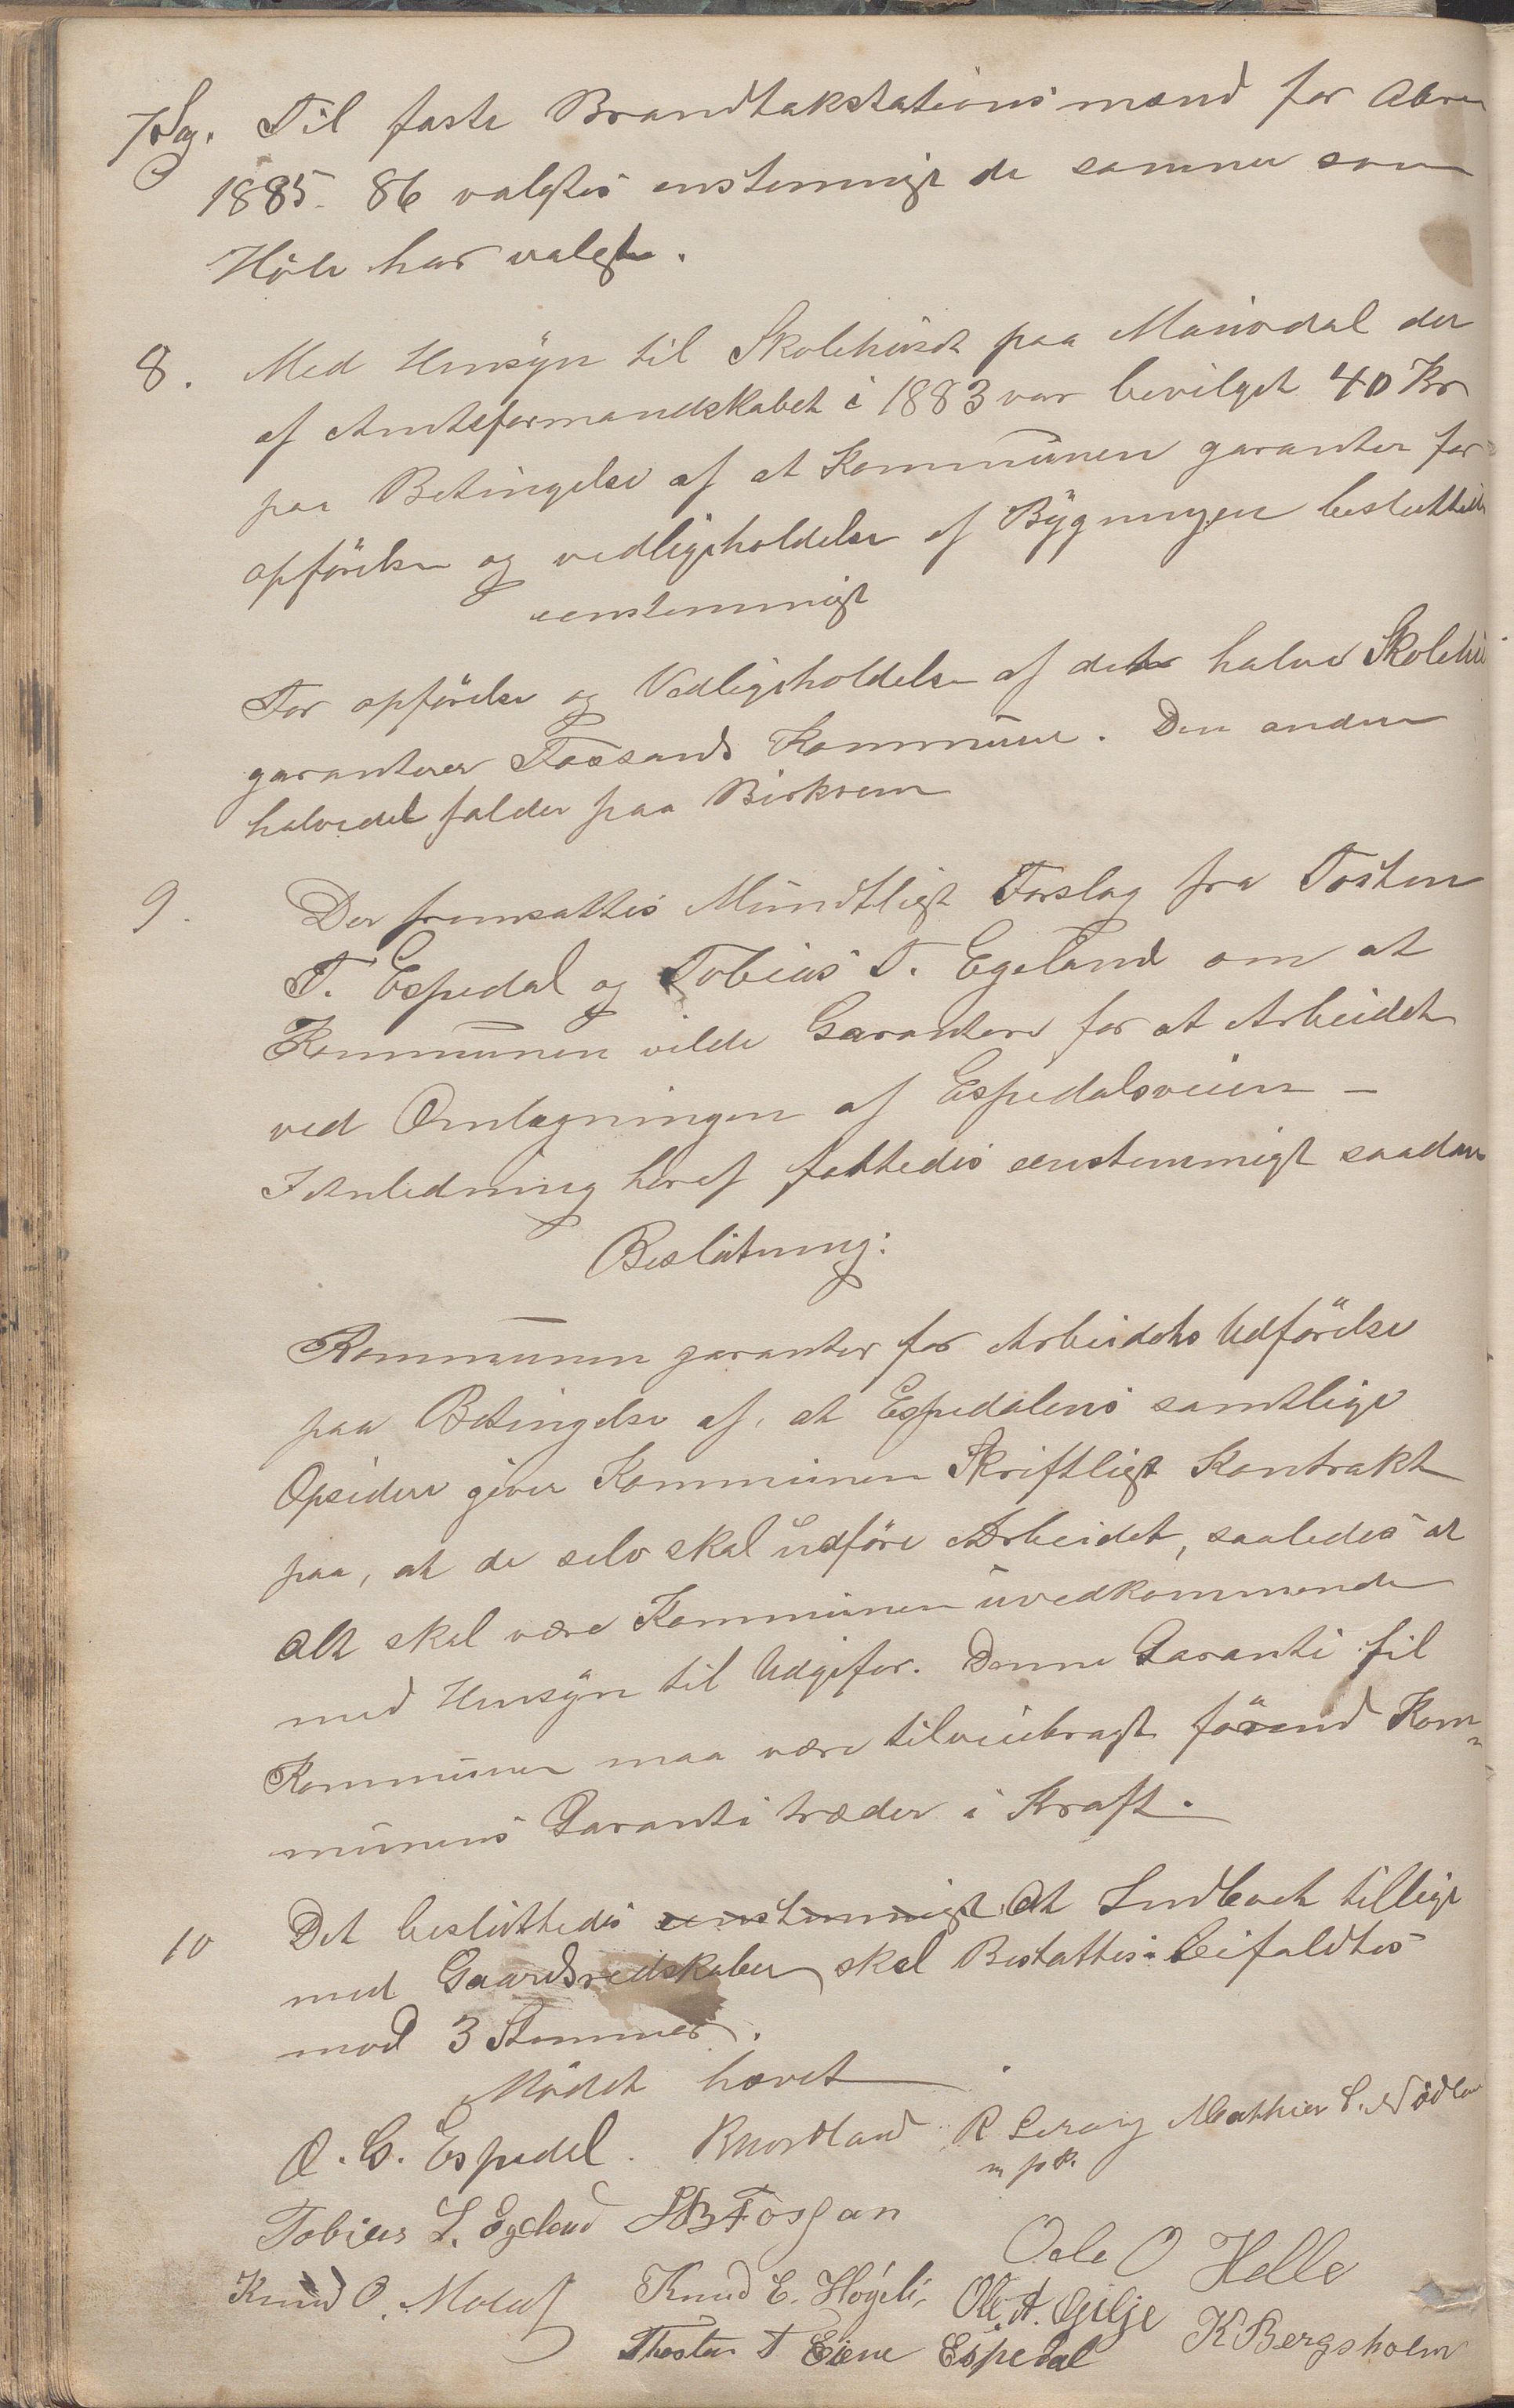 7 Sag. Til faste Brandtakstationsmænd for Abra
1885-86 valgtes enstemmigt de samme som
Höle har valgt.
8. Med Hensyn til Skolehuset paa Maudal der
af Amtsformandskabet i 1883 var bevilget 40 Kr
paa Betingelse af at Kommunen garanter for
opförelse og vedligeholdelse af Bygningen besluttedes
eenstemmigt
For opförelse og Vedligeholdelse af det halve Skolehus
garanterer Fossands Kommune. Den anden
halvedel falder paa Birkrem
9. Der fremsattes Mundtligt Forslag fra Tosten
T. Espedal og Tobias T. Egeland om at
Kommunen vilde Garantere for at Arbeidet
ved Omlægningen af Espedalsveien —
I Anledning heraf fattedes eenstemmigt saadan
Beslutning:
Kommunen garanter for Arbeidets Udförelse
paa Betingelse af, at Espedalens samtlige
Opsidere giver Kommunen Skriftligt Kontrakt
paa, at de selv skal udföre Arbeidet, saaledes at
Alt skal være Kommunen uvedkommende
med Hensyn til Udgifer. Denne Garanti til
Kommunen maa være tilveiebragt förend Kom-
munens Garanti træder i Kraft.
10 Det besluttedes eenstemmigt At Indboet tillige
med Gaardsredskaber skal Bestattes. Beifaldtes
mod 3 Stemmer.
Mödet hævet
O. C. Espedal. R Nordland R Lerang Mathias S. Nödland
m p P.
Tobias T. Egeland Fossan
Ole O Helle
Knud O. Knud E. Högeli Ole. A. Gilje
Thosten T Eiene Espedal K Bergsholm